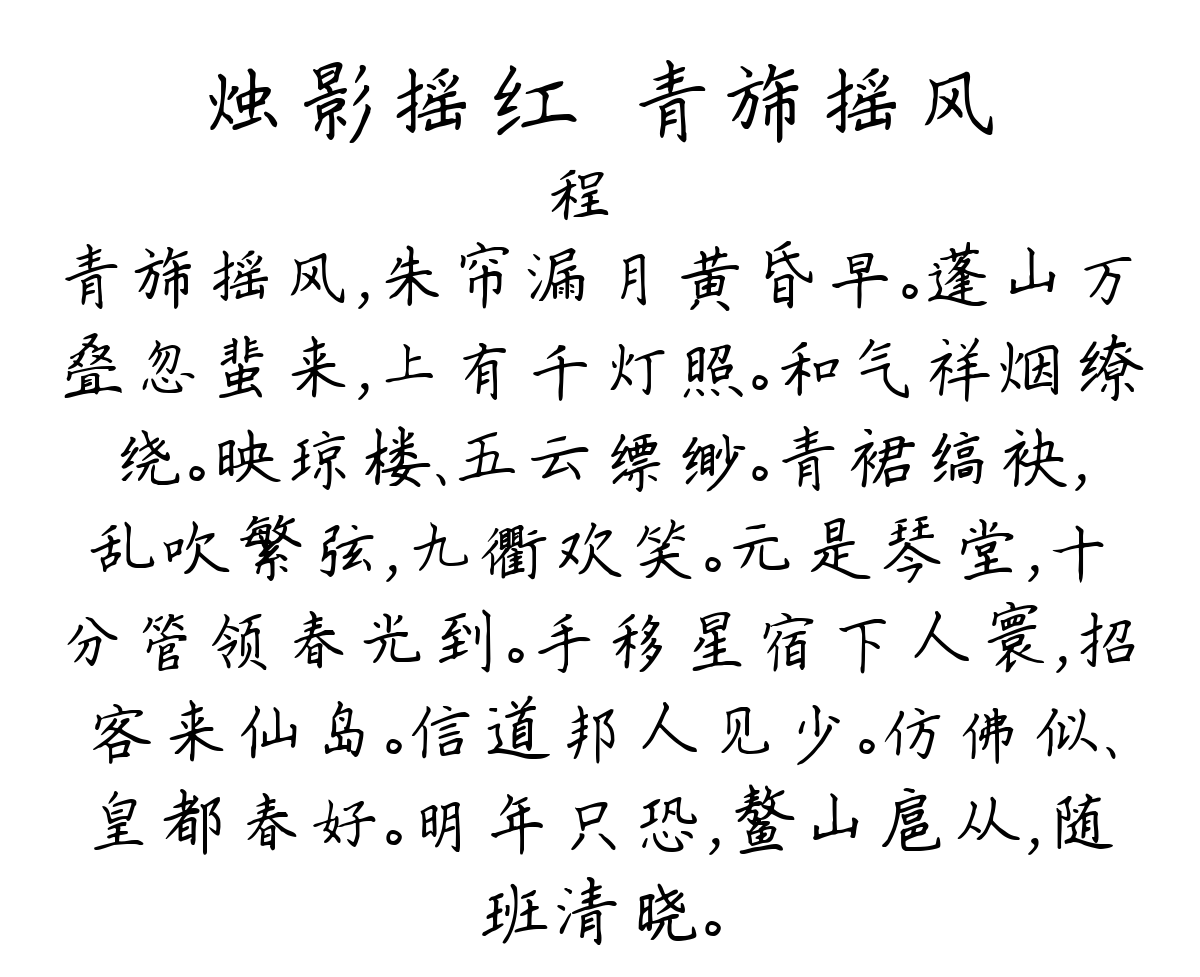 烛影摇红 青旆摇风
程
青旆摇风,朱帘漏月黄昏早。蓬山万
叠忽蜚来,上有千灯照。和气祥烟缭
绕。映琼楼、五云缥缈。青裙缟袂,
乱吹繁弦,九衢欢笑。元是琴堂,十
分管领春光到。手移星宿下人寰,招
客来仙岛。信道邦人见少。仿佛似、
皇都春好。明年只恐,鳌山扈从,随
班清晓。